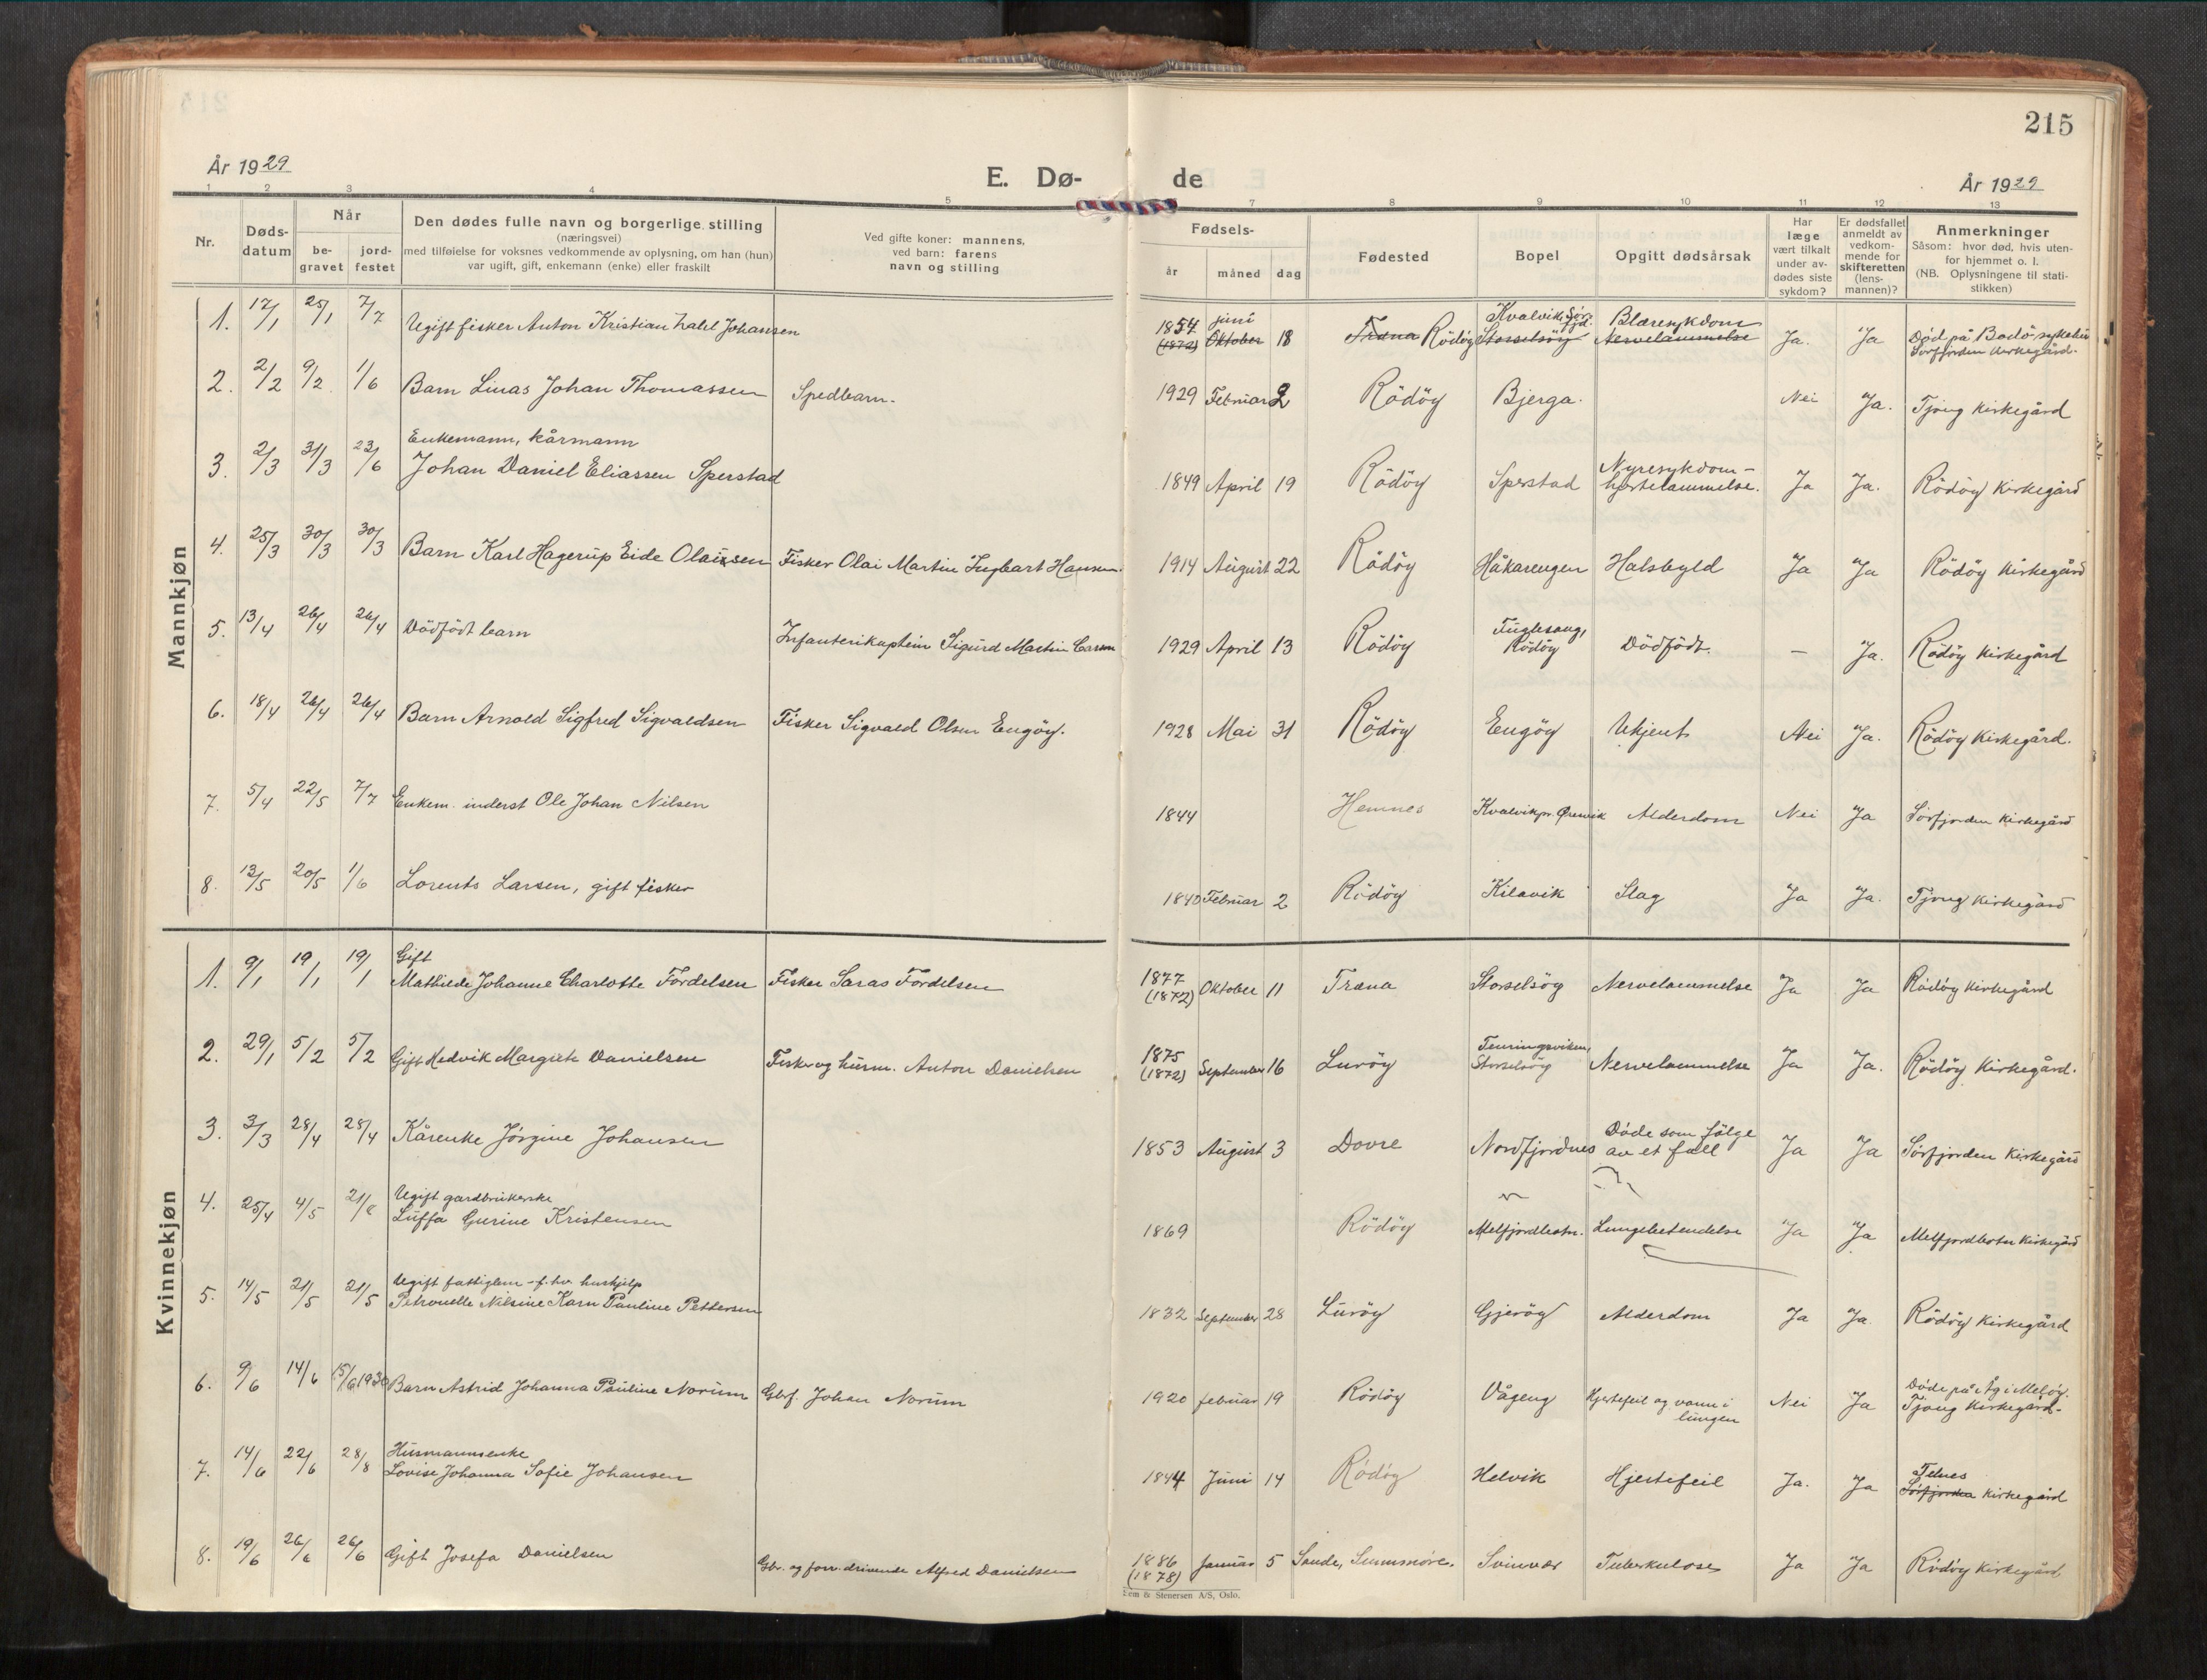 215
År 1929
E. Dø-
de
År 1929
1 2 3 4 5 7 8 9 10 11 12 13
Nr.
Døds-
datum
Når
be-
gravet
jord-
festet
Den dødes fulle navn og borgerlige stilling
(næringsvei)
med tilføielse for voksnes vedkommende av oplysning, om han (hun)
var ugift, gift, enkemann (enke) eller fraskilt
Ved gifte koner: mannens,
ved barn: farens
navn og stilling
Fødsels-
år måned dag
Fødested
Bopel
Opgitt dødsårsak
Har
læge
vært tilkalt
under av-
dødes siste
sykdom?
Er dødsfallet
anmeldt av
vedkom-
mende for
skifteretten
(lens-
mannen)?
Anmerkninger
Såsom: hvor død, hvis uten-
for hjemmet o. l.
(NB. Oplysningene til stati-
stikken)
Mannkjøn
1. 17/1 25/1 7/7 Ugift fisker Anton Kristian Johansen
1854 juni Kvalvik Sør- Blæresykdom
(1872) Oktober 18 Træna Rödöy Storselsöy Nervelammelse Ja. Ja Død på Bodö sykehus
Sørfjorden kirkegård.
2. 2/2 9/2 1/6 Barn Linas Johan Thomassen Spedbarn. 1929 Februar 2 Rödöy Bjerga. Nei Ja. Tjong kirkegård
Enkemann, kårmann
3. 2/3 31/3 23/6 Johan Daniel Eliassen Sperstad 1849 April 19 Rödöy Sperstad Nyresykdom -
hjertelammelse. Ja Ja. Rödöy kirkegård
4. 25/3 30/3 30/3 Barn Karl Hagerup Eide Olaisen Fisker Olai Martin Ingbart Hansen. 1914 August 22 Rödöy Håkarengen Halsbyld Ja Ja Rödöy kirkegård
5. 13/4 26/4 26/4 Dödfödt barn Infanterikaptein Sigurd Martin 1929 April 13 Rödöy Fuglesang,
Rödöy Dödfödt. — Ja. Rödöy kirkegård
6. 18/4 26/4 26/4 Barn Arnold Sigfred Sigvaldsen Fisker Sigvald Olsen Engöy. 1928 Mai 31 Rödöy Engöy Ukjent Nei Ja. Rödöy kirkegård.
7. 5/4 22/5 7/7 Enkem. inderst Ole Johan Nilsen 1844 Hemnes Kvalvik pr. Øresvik Alderdom Nei Ja Sörfjorden kirkegård
8. 12/5 20/5 1/6 Lorents Larsen, gift fisker 1840 Februar 2 Rödöy Kilavik Slag Ja Ja. Tjong kirkegård
Kvinnekjøn
Gift
1. 9/1 19/1 19/1 Mathilde Johanne Charlotte Fordelsen Fisker Saras Fordelsen 1877
(1872) Oktober 11 Træna Storselsöy Nervelammelse Ja Ja Rödöy kirkegård
2. 29/1 5/2 5/2 Gift Hedvik Margrete Danielsen Fisker og husm. Anton Danielsen 1875
(1872) September 16 Luröy Tenringsviken,
Storselsöy Nervelammelse Ja Ja. Rödöy kirkegård.
3. 3/3 28/4 28/4 Kårenke Jörgine Johansen 1853 August 3 Dovre Nordfjordnes Döde som fölge
av et fall Ja Ja Sörfjorden kirkegård
Ugift gardbrukerske
4. 25/4 4/5 21/8 Luffa Gurine Kristensen 1869 Rödöy Melfjordbotn. Lungebetendelse Ja Ja Melfjordbotn kirkegård
Ugift fattiglem - f. hv. hushjelp
5. 14/5 21/5 21/5 Petronelle Nilsine Karn Pauline Pettersen 1832 September 28 Luröy Gjeröy Alderdom Ja Ja Rödöy kirkegård
6. 9/6 14/6 15/6 1930 Barn Astrid Johanna Pauline Norum Gbf. Johan Norum 1920 februar 19 Rödöy Vågeng Hjertefeil og vann i
lungen Nei Ja Döde på Åg i Melöy.
Tjong kirkegård.
Husmannsenke
7. 14/6 22/6 28/8 Lovise Johanna Sofie Johansen 1844 Juni 14 Rödöy Helvik Hjertefeil Ja. Ja Telnes
Sörfjorden kirkegård
8. 19/6 26/6 26/6 Gift Josefa Danielsen Gbr. og forr. drivende Alfred Danielsen 1886
(1878) Januar 5 Sande, Sunnmöre. Svinvær Tuberkulose Ja Ja Rödöy kirkegård
Sem & Stenersen A/S, Oslo.